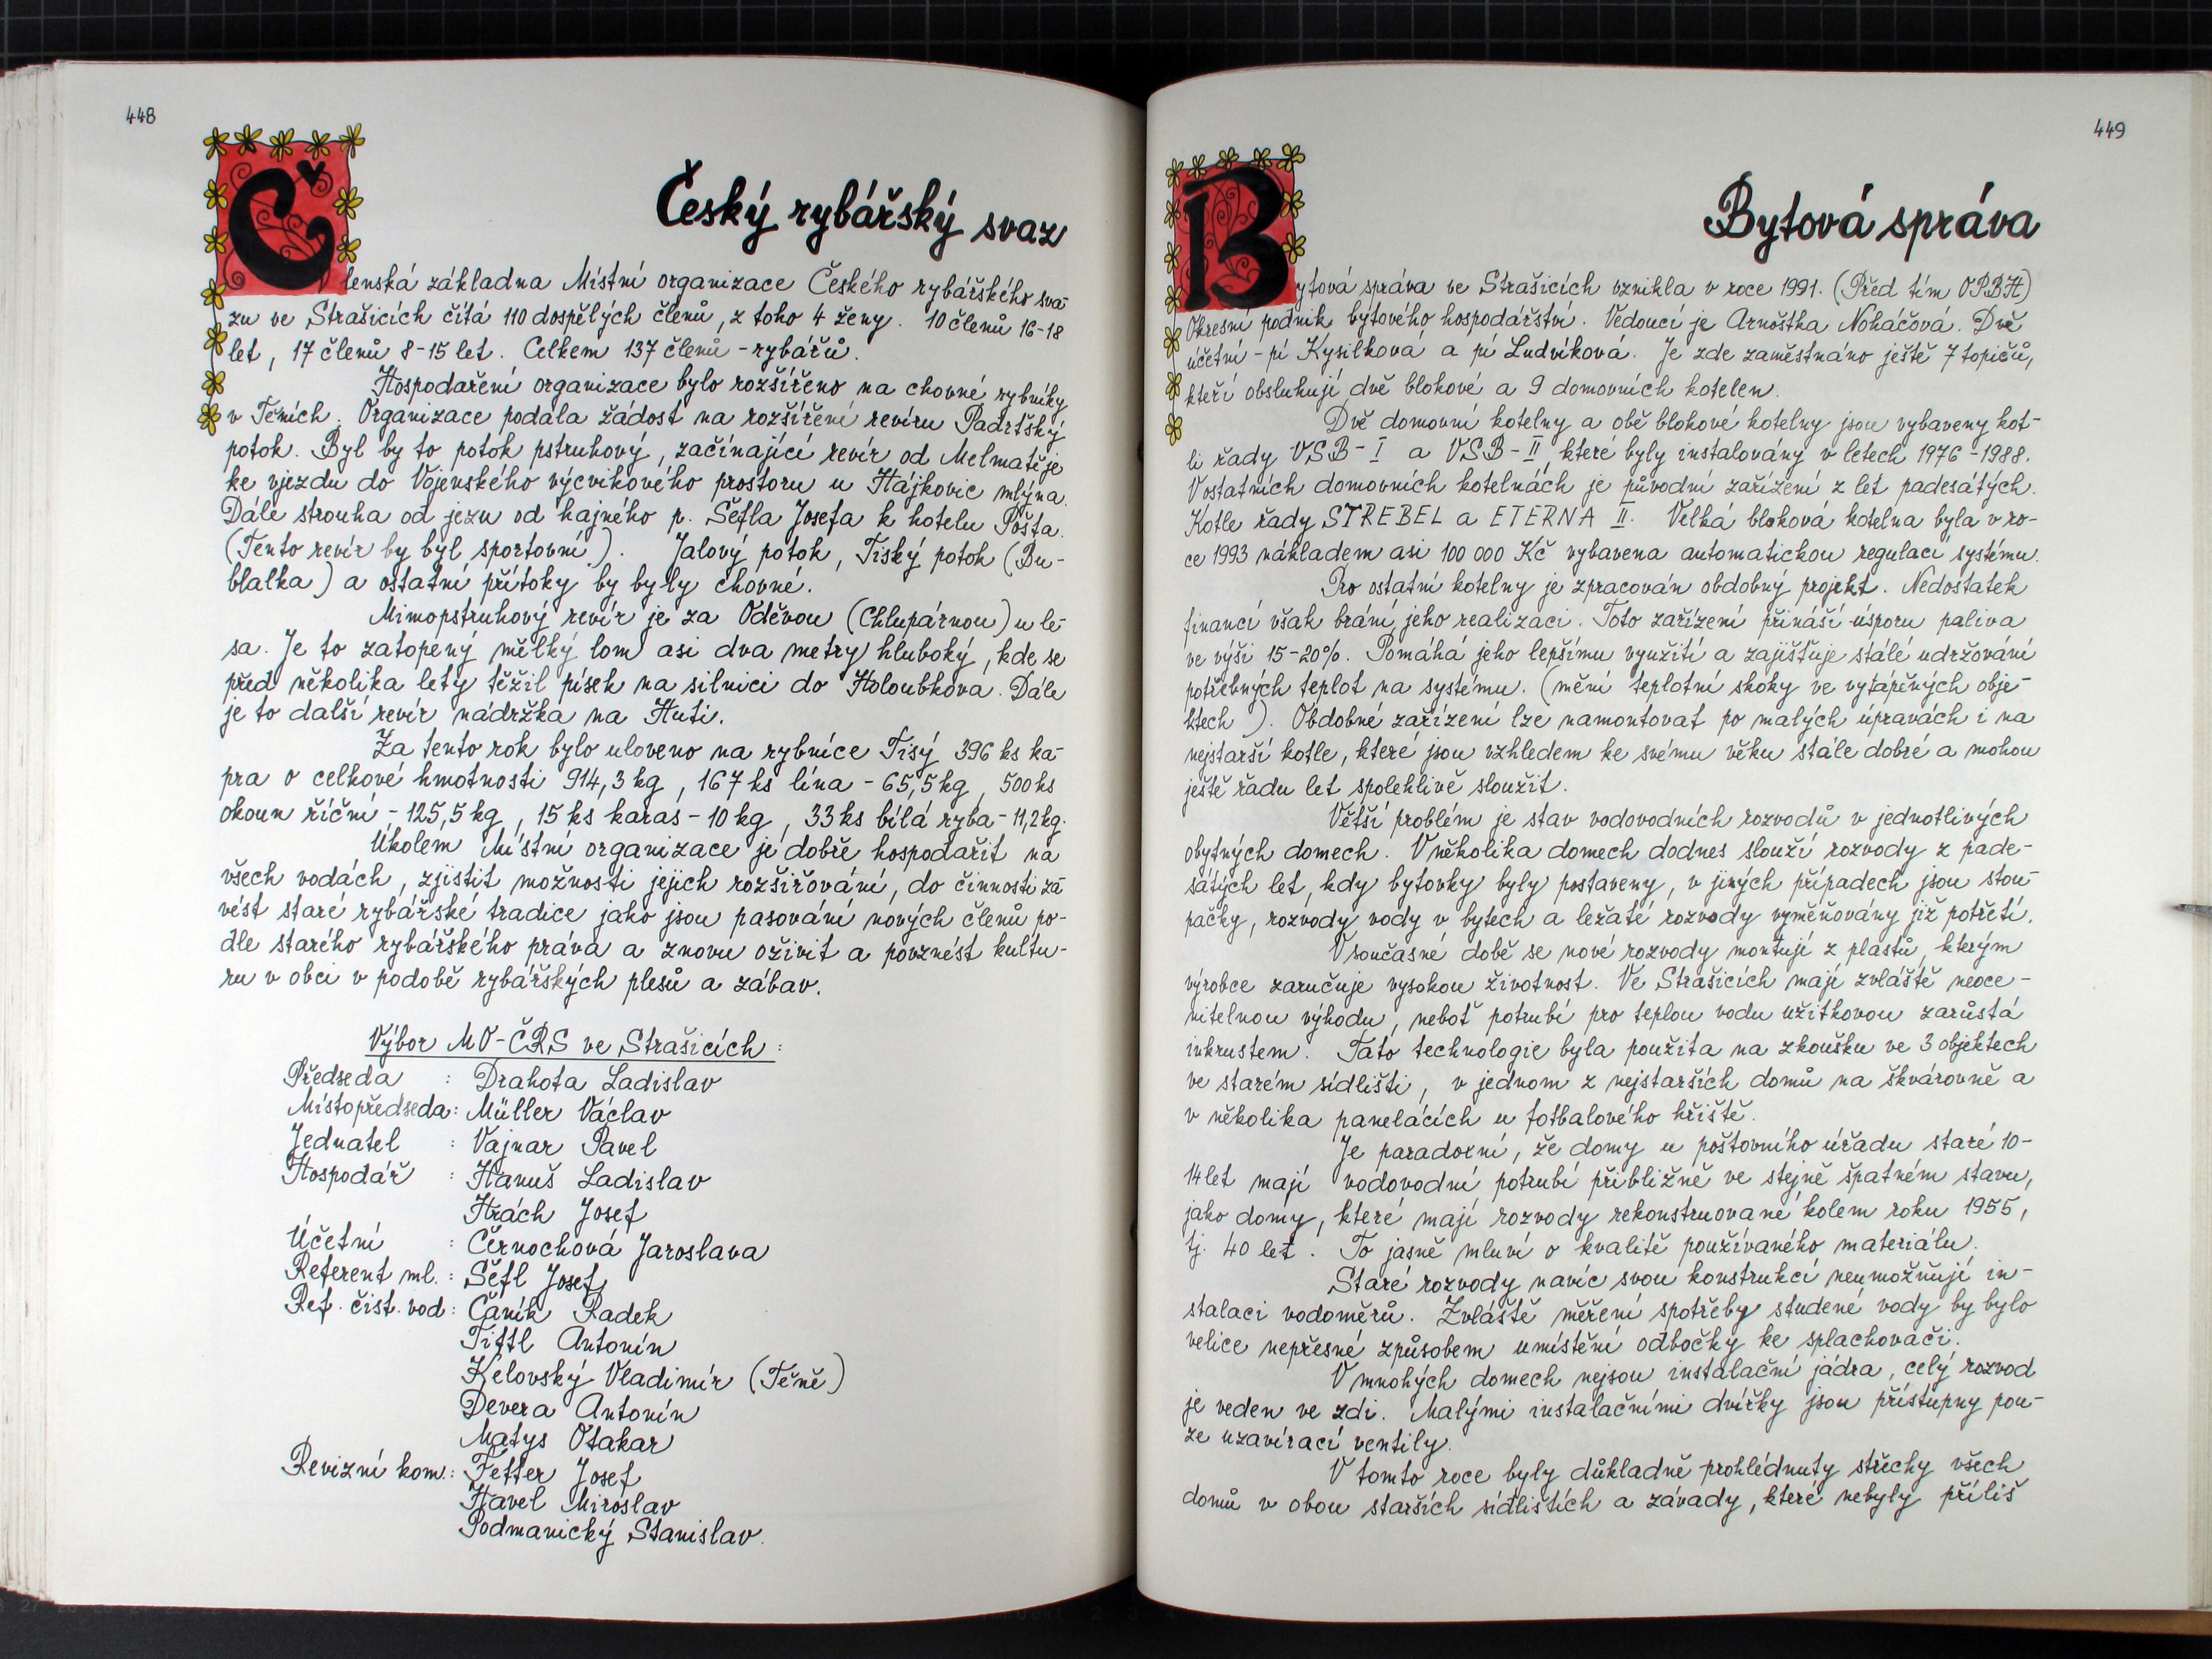 448
Český rybářský svaz
Členská základna Místní organizace Českého rybářského sva-
zu ve Strašicích čítá 110 dospělých členů, z toho 4 ženy. 10 členů 16-18
let, 17 členů 8-15 let. Celkem 137 členů - rybářů.
Hospodaření organizace bylo rozšířeno na chovné rybníky
v Těních. Organizace podala žádost na rozšíření revíru Padrťský
potok. Byl by to potok pstruhový, začínající revír od Melmatěje
ke vjezdu do Vojenského výcvikového prostoru u Hájkovic mlýna.
Dále strouha od jezu od hajného p. Šefla Josefa k hotelu Pošta.
(Tento revír by byl sportovní). Jalový potok, Tiský potok (Bu-
blalka) a ostatní přítoky by byly chovné.
Mimopstruhový revír je za Oděvou (Chlupárnou) u le-
sa. Je to zatopený mělký lom asi dva metry hluboký, kde se
před několika lety těžil písek na silnici do Holoubkova. Dále
je to další revír nádržka na Huti.
Za tento rok bylo uloveno na rybníce Tisý 396 ks ka-
pra o celkové hmotnosti 914,3 kg, 167 ks lína - 65,5 kg, 500 ks
okoun říční - 125,5 kg, 15 ks karas - 10 kg, 33 ks bílá ryba - 11,2 kg.
Úkolem Místní organizace je dobře hospodařit na
všech vodách, zjistit možnosti jejich rozšiřování, do činnosti za-
vést staré rybářské tradice jako jsou pasování nových členů po-
dle starého rybářského práva a znovu oživit a povznést kultu-
ru v obci v podobě rybářských plesů a zábav.
Výbor MO-ČRS ve Strašicích:
Předseda : Drahota Ladislav
Místopředseda: Müller Václav
Jednatel : Vajnar Pavel
Hospodář : Hanuš Ladislav
Hrách Josef
Účetní : Černochová Jaroslava
Referent ml.: Šefl Josef
Ref. čist. vod: Čaník Radek
Tiftl Antonín
Kelovský Vladimír (Těně)
Devera Antonín
Matys Otakar
Revizní kom.: Fetter Josef
Havel Miroslav
Podmanický Stanislav.
449
Bytová správa
Bytová správa ve Strašicích vznikla v roce 1991. (Před tím OPBH)
Okresní podnik bytového hospodářství. Vedoucí je Arnoštka Noháčová. Dvě
účetní - pí Kysilková a pí Ludvíková. Je zde zaměstnáno ještě 7 topičů,
kteří obsluhují dvě blokové a 9 domovních kotelen.
Dvě domovní kotelny a obě blokové kotelny jsou vybaveny kot-
li řady VSB-I a VSB-II, které byly instalovány v letech 1976-1988.
V ostatních domovních kotelnách je původní zařízení z let padesátých.
Kotle řady STREBEL a ETERNA II. Velká bloková kotelna byla v ro-
ce 1993 nákladem asi 100 000 Kč vybavena automatickou regulací systému.
Pro ostatní kotelny je zpracován obdobný projekt. Nedostatek
financí však brání jeho realizaci. Toto zařízení přináší úsporu paliva
ve výši 15-20%. Pomáhá jeho lepšímu využití a zajišťuje stálé udržování
potřebných teplot na systému. (mění teplotní skoky ve vytápěných obje-
ktech). Obdobné zařízení lze namontovat po malých úpravách i na
nejstarší kotle, které jsou vzhledem ke svému věku stále dobré a mohou
ještě řadu let spolehlivě sloužit.
Větší problém je stav vodovodních rozvodů v jednotlivých
obytných domech. V několika domech dodnes slouží rozvody z pade-
sátých let, kdy bytovky byly postaveny, v jiných případech jsou stou-
pačky, rozvody vody v bytech a ležaté rozvody vyměňovány již potřetí.
V současné době se nové rozvody montují z plastů, kterým
výrobce zaručuje vysokou životnost. Ve Strašicích mají zvláště neoce-
nitelnou výhodu, neboť potrubí pro teplou vodu užitkovou zarůstá
inkrustem. Tato technologie byla použita na zkoušku ve 3 objektech
ve starém sídlišti, v jednom z nejstarších domů na škvárovně a
v několika panelácích u fotbalového hřiště.
Je paradoxní, že domy u poštovního úřadu staré 10-
14 let mají vodovodní potrubí přibližně ve stejně špatném stavu,
jako domy, které mají rozvody rekonstruované kolem roku 1955,
tj. 40 let. To jasně mluví o kvalitě používaného materiálu.
Staré rozvody navíc svou konstrukcí neumožňují in-
stalaci vodoměrů. Zvláště měření spotřeby studené vody by bylo
velice nepřesné způsobem umístění odbočky ke splachovači.
V mnohých domech nejsou instalační jádra, celý rozvod
je veden ve zdi. Malými instalačními dvířky jsou přístupny pou-
ze uzavírací ventily.
V tomto roce byly důkladně prohlédnuty střechy všech
domů v obou starších sídlištích a závady, které nebyly příliš